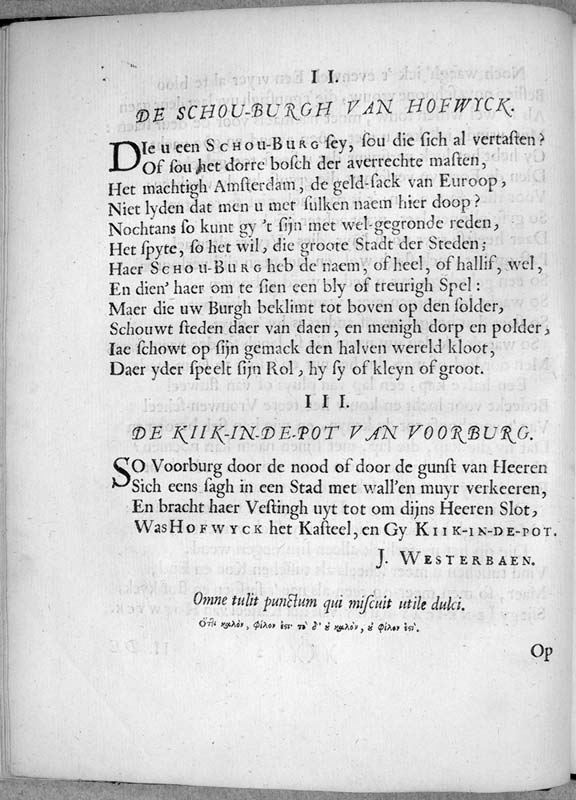 I I.
DE SCHOU-BURGH VAN HOFWYCK.
DIe u een SCHOU-BURG ſey, ſou die ſich al vertaſten?
Of ſou het dorre boſch der averrechte maſten,
Het machtigh Amſterdam, de geld-ſack van Euroop,
Niet lyden dat men u met ſulken naem hier doop?
Nochtans ſo kunt gy 't ſijn met wel-gegronde reden,
Het ſpyte, ſo het wil, die groote Stadt der Steden;
Haer SCHOU-BURG heb de naem, of heel, of hallif, wel,
En dien' haer om te ſien een bly of treurigh Spel:
Maer die uw Burgh beklimt tot boven op den ſolder,
Schouwt ſteden daer van daen, en menigh dorp en polder,
Iae ſchowt op ſijn gemack den halven wereld kloot,
Daer yder ſpeelt ſijn Rol, hy ſy of kleyn of groot.
I I I.
DE KIIK-IN-DE-POT VAN VOORBURG.
SO Voorburg door de nood of door de gunſt van Heeren
Sich eens ſagh in een Stad met wall'en muyr verkeeren,
En bracht haer Veſtingh uyt tot om dijns Heeren Slot,
Was HOFWYCK het Kaſteel, en Gy KIIK-IN-DE-POT.
J. WESTERBAEN.
Omne tulit punctum qui miſcuit utile dulci.
καλὸν, φίλον ἐςὶ· τὸ δ' ȣ καλὸν, ȣ φίλον ἐςί.
Op